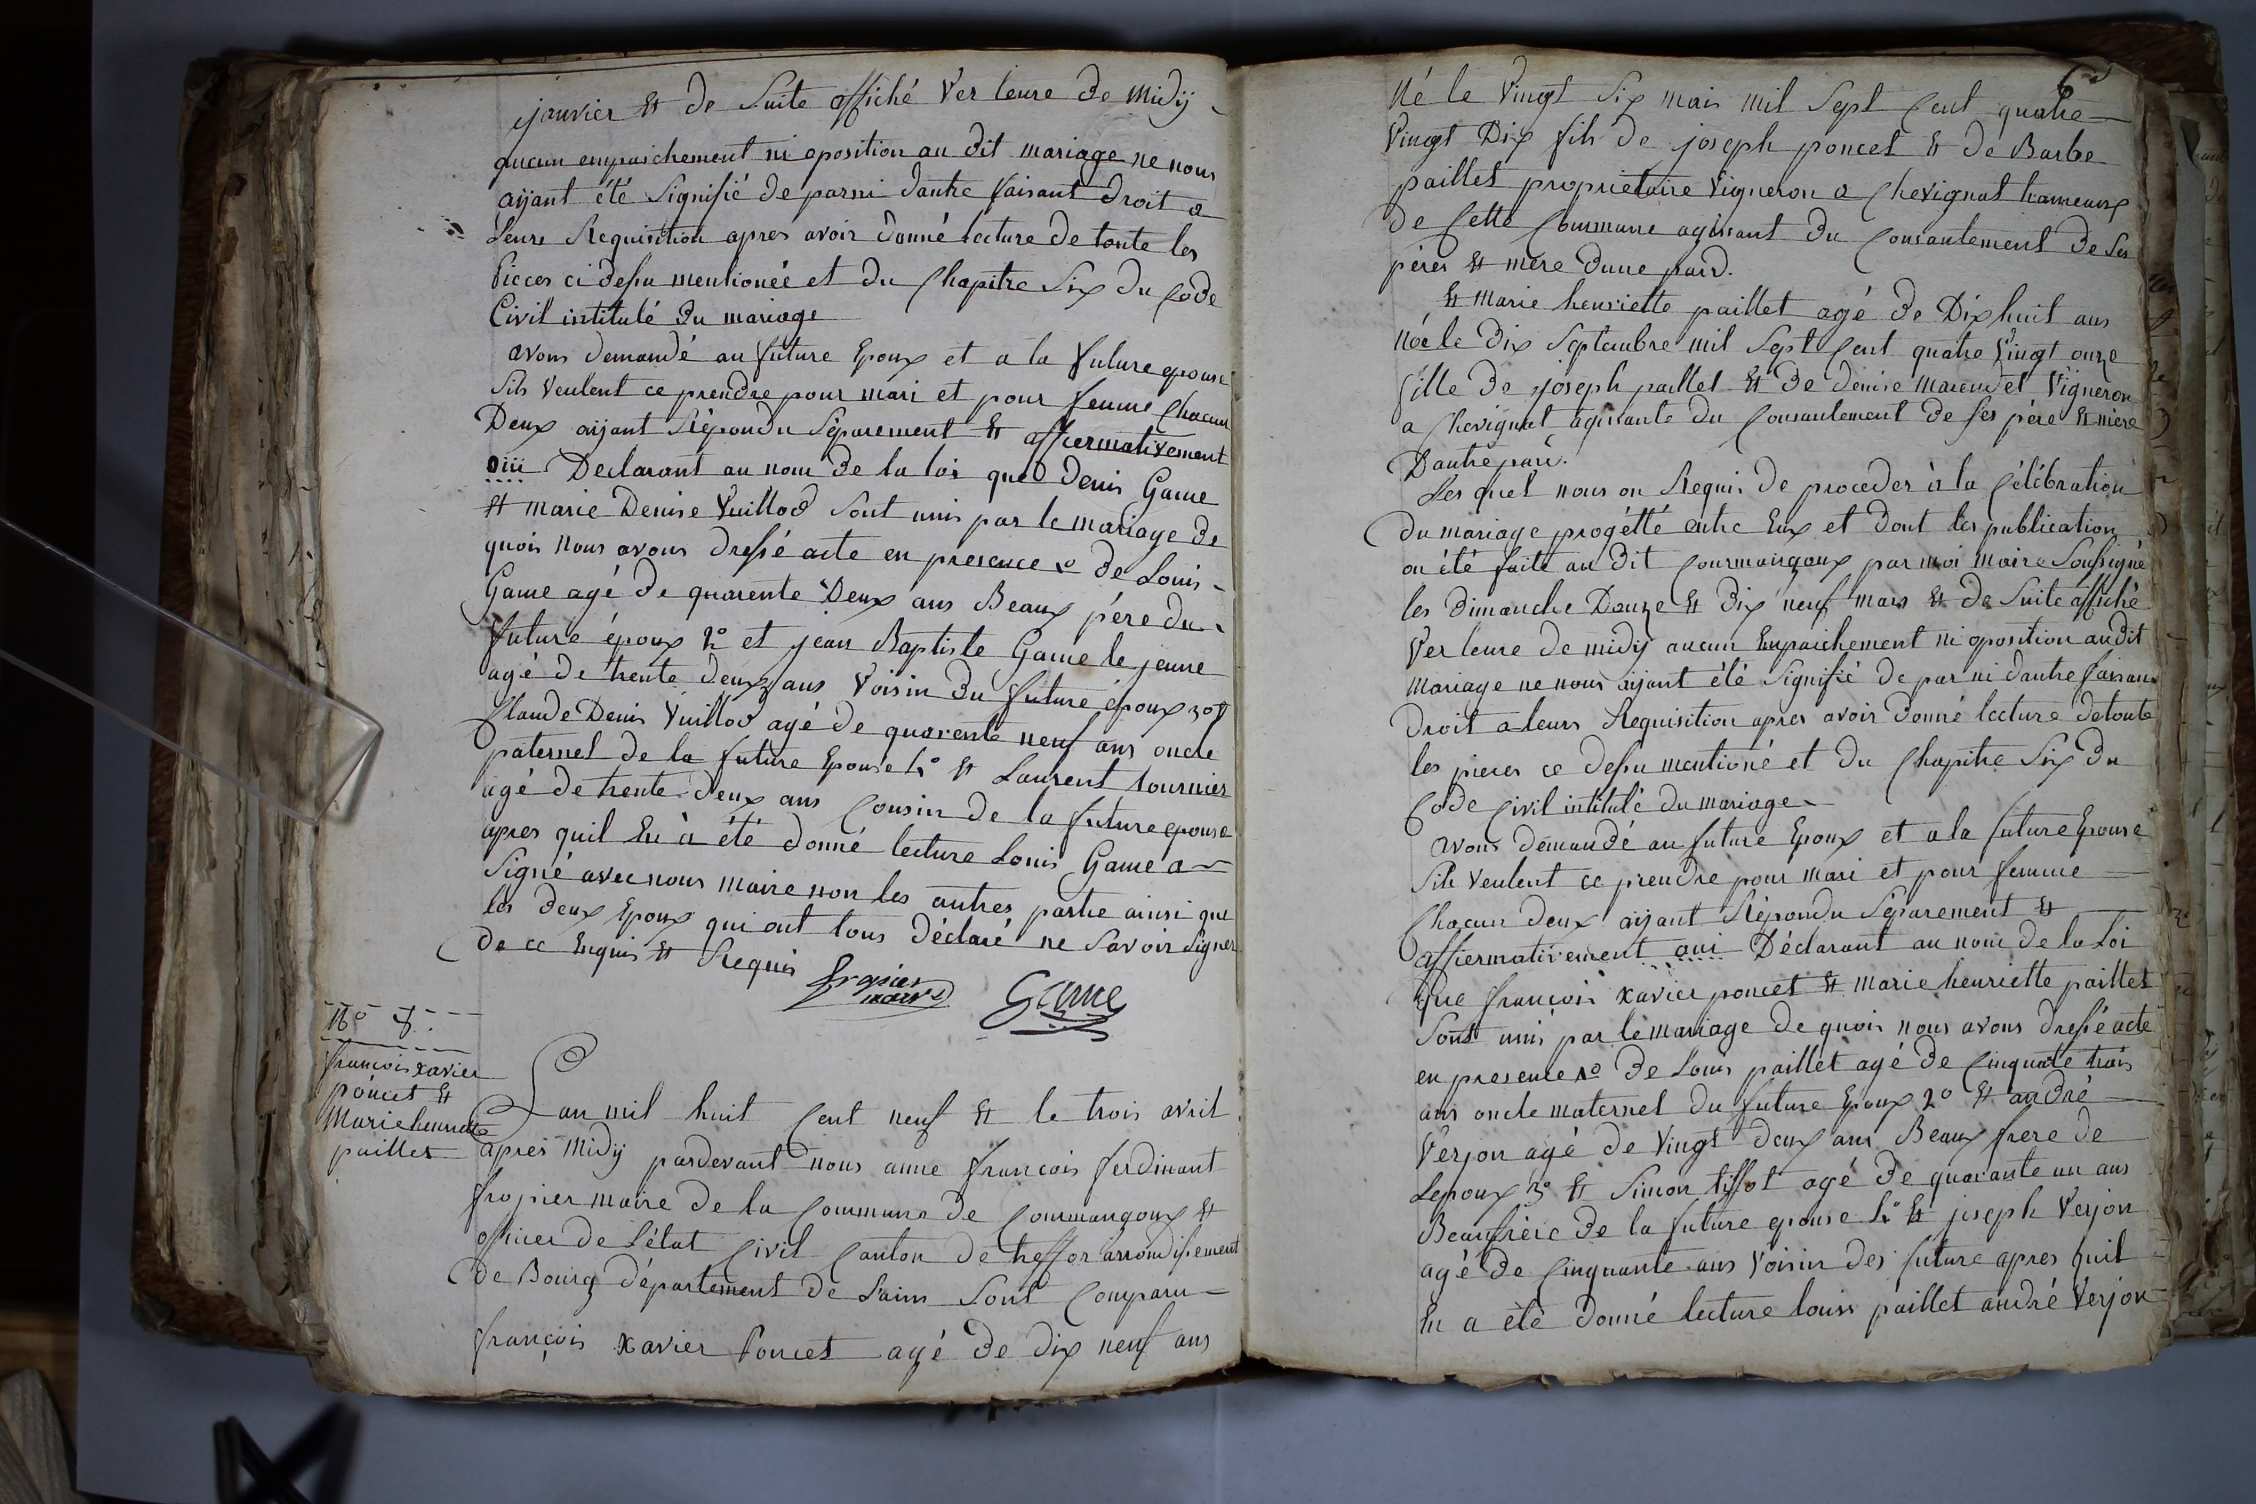 janvier et de Suite affiché Ver leure de Midÿ
aucun empaichement ni oposition au dit mariage ne nous
aÿant été Signifié de par ni dautre faisant droit a
leurs Requisition apres avoir donné lecture de toute les
Pieces ci dessu mentionée et du Chapitre Six du Code
Civil intitulé du mariage
avons demandé au future Epoux et a la future epouse
Sils veulent ce prendre pour mari et pour femme Chacun
Deux aÿant Répondu Séparement et affiermativement
oui Declarant au nom de la loi que denis Game
et marie Denise Vuillod Sont unis par le mariage de
quois Nous avons dressé acte en presence 1o de Louis
Game agé de quarente Deux ans Beaux pére du
future époux 2o et jean Baptiste Game le jeune
agé de trente deux ans Voisin du future époux 3o et
Claude Denis Vuillod agé de quarente neuf ans oncle
paternel de la future Epouse 4o et Laurent tournier
agé de trente deux ans Cousin de la future epouse
apres quil Lu à été donné lecture Louis Game a
Signé avec nous maire non les autres partie ainsi que
les deux Epoux qui ont tous Déclaré ne Savoir Signer
de ce Enquis et Requis
fropier
maire
Game
No 8.
françois xavier
poncet et
Marie henriette
paillet
Lan mil huit Cent neuf et le trois avril
aprés Midÿ pardevant nous anne françois ferdinant
fropier maire de la Commune de Courmangoux et
officier de Létat Civil Canton de treffor arrondissement
de Bourg département de Lain Sont Comparu
françois xavier Poncet agé de dix neuf ans
6
Né le Vingt Six mais mil Sept Cent quatre
Vingt Dix fils de joseph poncet et de Barbe
paillet proprietaire Vigneron a Chevignat hameaux
de Cette Commune agissant du Consantement de Ses
péres et mére dune pard.
et Marie henriette paillet agé de Dix huit ans
née le dix Septembre mil Sept Cent quatre Vingt onze
fille de joseph paillet et de denise marendet Vigneron
a Chevignat agissante du Consantement de Ses pére et mére
Dautre pard.
Les quel nous on Requis de proceder à la Célébration
du mariage progétté entre Eux et dont les publication
on été faite au dit Courmangoux par moi maire Soussigné
les dimanche Douze et dix neuf mars et de Suite affiché
Ver leure de midÿ aucun Enpaichement ni oposition audit
mariage ne nous aÿant été Signifié de par ni dautre faisan
droit a leurs Requisition apres avoir donné lecture de toute
les pieces ce dessu mentioné et du Chapitre Six du
Code Civil intitulé du mariage
avons démandé au future Epoux et a la future Epouse
Sils veulent ce prendre pour mari et pour femme
Chacun deux aÿant Répondu Séparement et
affiermativement oui Déclarant au nom de la Loi
que françois xavier poncet et marie henriette paillet
Sont unis par le mariage de quois nous avons dressé acte
en presence 1o de Louis paillet agé de Cinquante trois
ans oncle maternel du future Epoux 2o et andré
Verjon agé de Vingt deux ans Beaux frere de
Lepoux 3o et Simon tissot agé de quarante un ans
Beaufrére de la future epouse 4o et joseph Verjon
agé de Cinquante ans Voisin des future apres quil
Lu a été donné lecture louis paillet andré Verjon